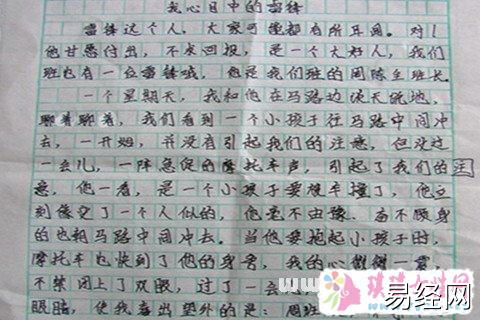 我心目中的雷锋
雷锋这个人，大家可能都有所耳闻。对！
他甘愿付出，不求回报，是一个大好人，我们
班也有一位雷锋哦，他是我们班的周陈全班长。
一个星期天，我和他在马路边谈天说地，
聊着聊着，我们看到一个小孩子往马路中间冲
去，一开始，并没有引起我们的注意，但没过
一会儿，一阵急促的摩托车声，引起了我们的注
意，他一看，是一个小孩子要被车撞了，他立
刻像变了一个人似的，他毫不由豫、奋不顾身
的也朝马路中间冲去。当他要抱起小孩子时，
摩托车也快到了他的身旁，我的心猛得一震，
不禁闭上了双眼，过了一会
眼睛，使我喜出望外的是：周班
易经网